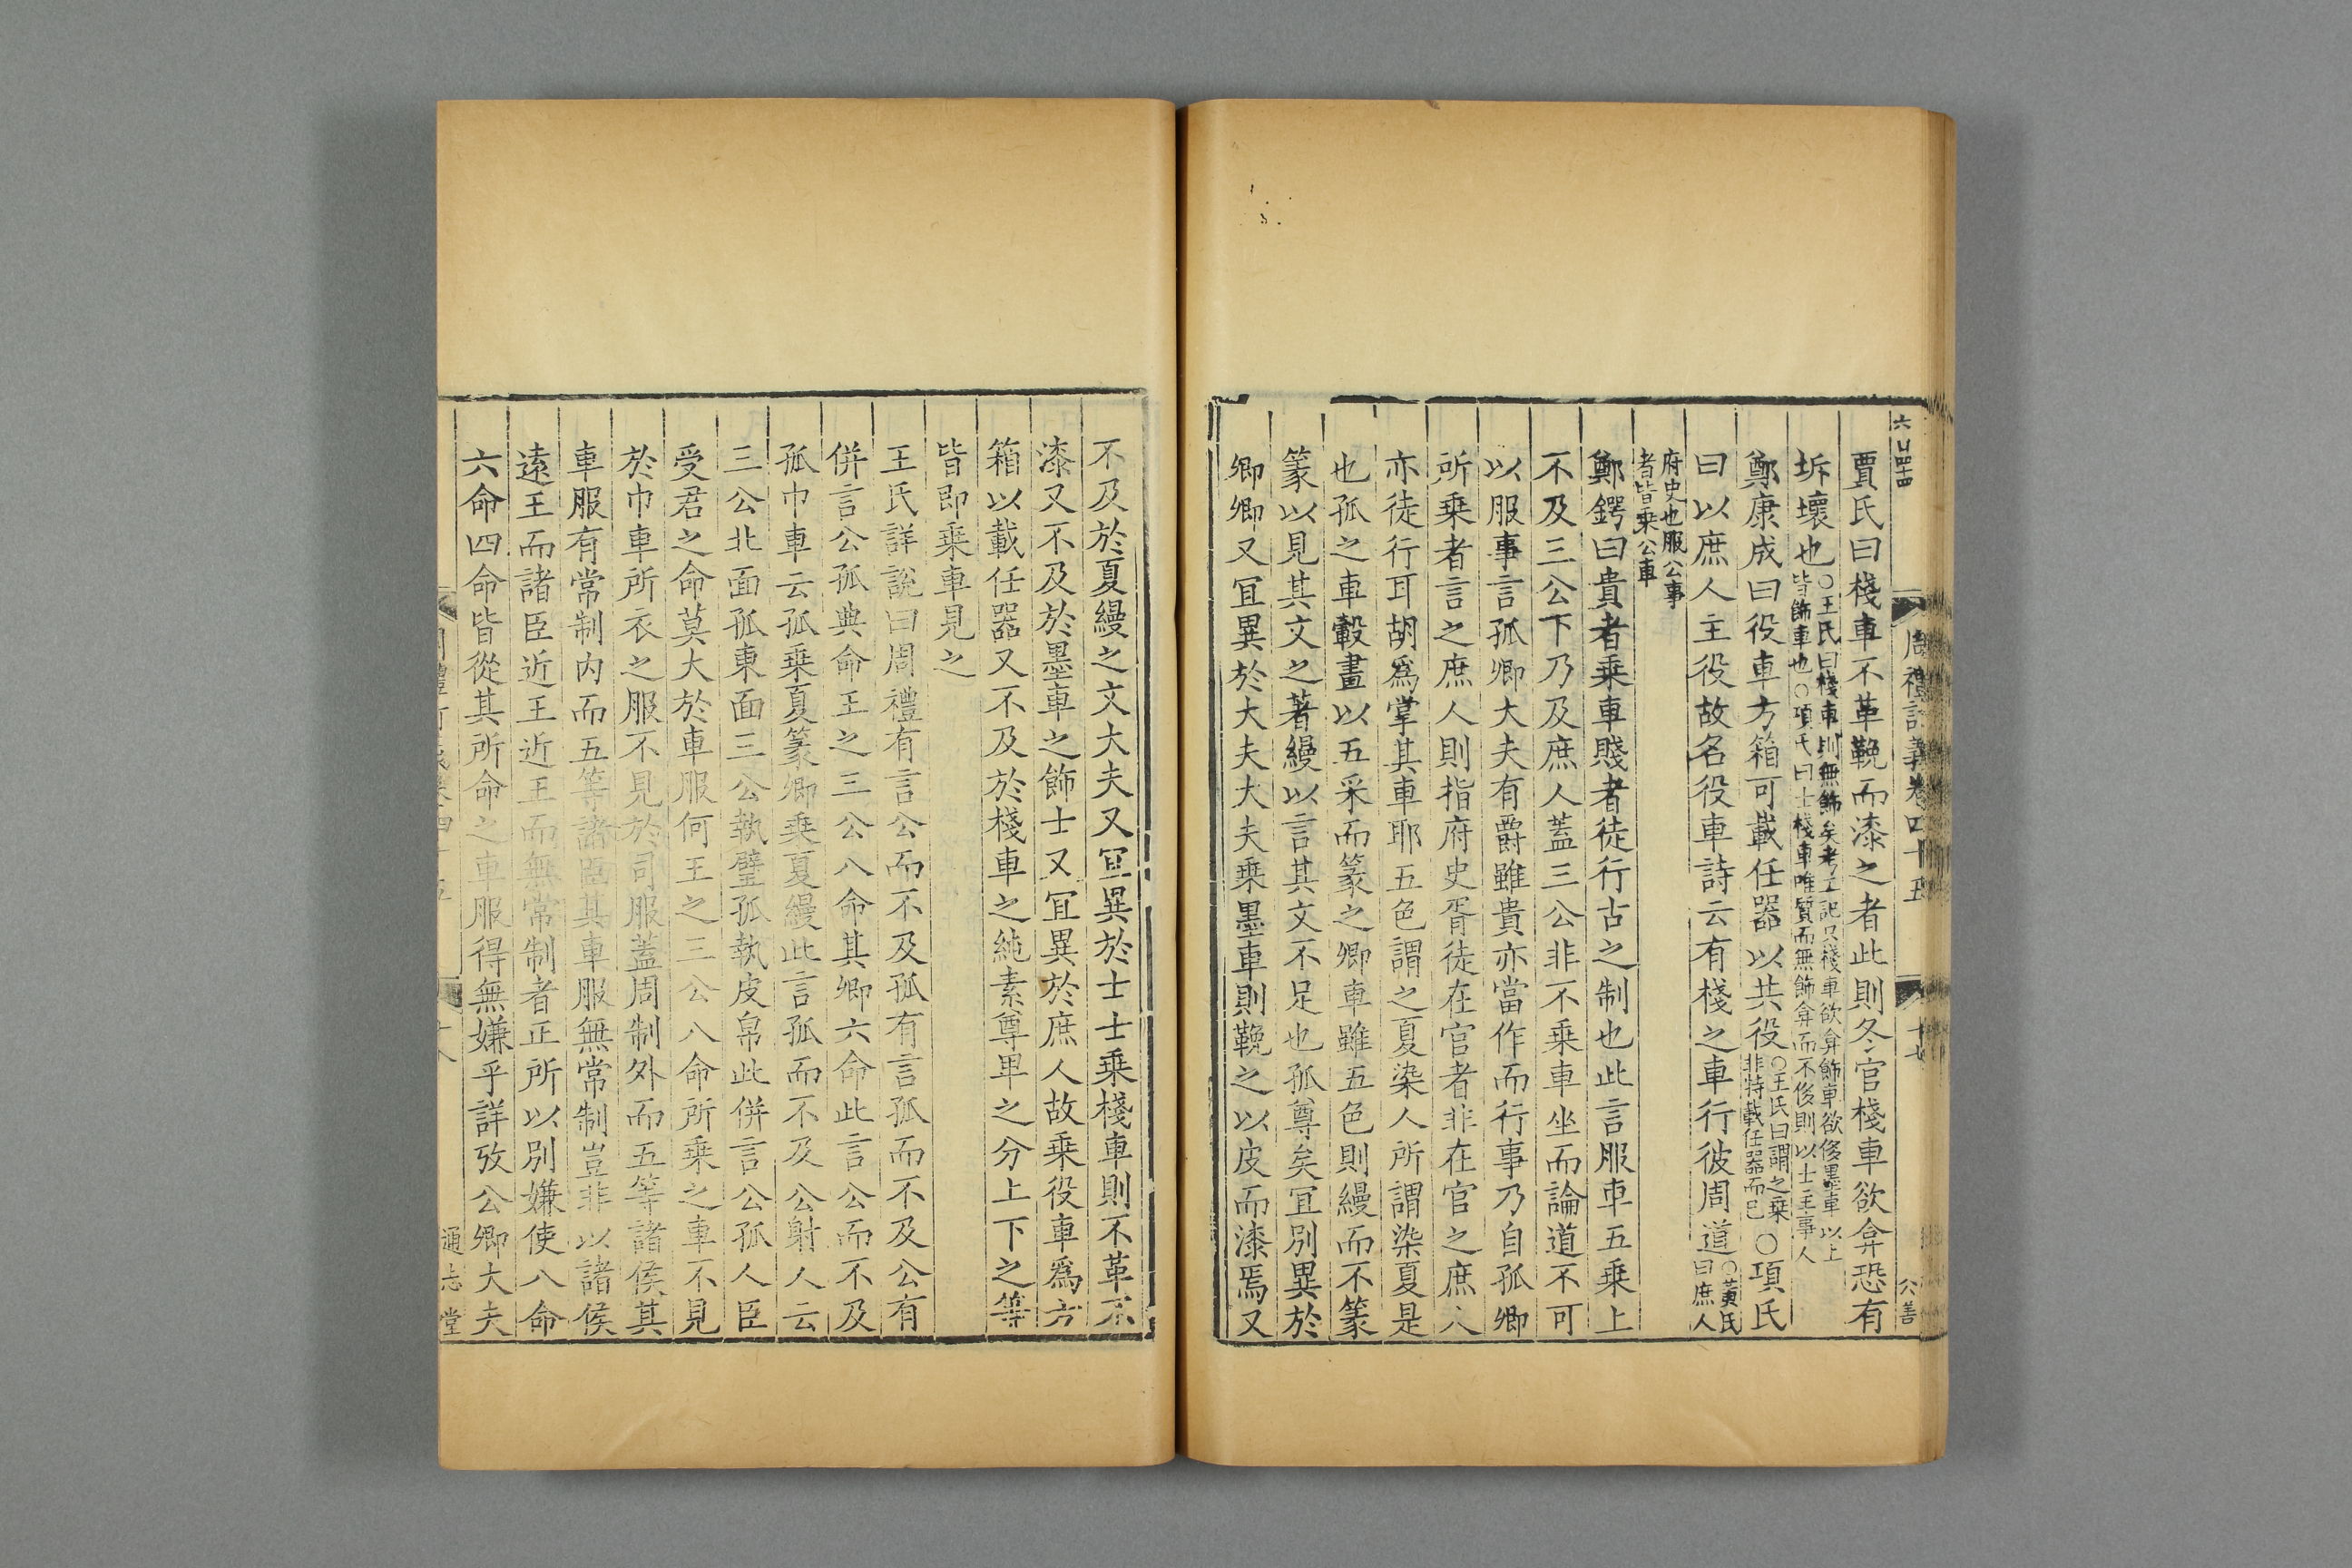 六 廿四
周禮訂義卷四十五
十七
公善
賈氏曰棧車不革鞔而漆之者此則冬官棧車欲弇恐有
坼壞也○王氏曰棧車則無飾矣考工記只棧車欲弇飾車欲侈墨車以上
皆飾車也○項氏曰士棧車唯質而無飾弇而不侈則以士主事人
鄭康成曰役車方箱可載任器以共役○王氏曰謂之乗
非特載任器而已○項氏
曰以庶人主役故名役車詩云有棧之車行彼周道○黃氏
曰庶人
府史也服公事
者皆乗公車
鄭鍔曰貴者乗車賤者徒行古之制也此言服車五乗上
不及三公下乃及庶人蓋三公非不乗車坐而論道不可
以服事言孤卿大夫有爵雖貴亦當作而行事乃自孤卿
所乗者言之庶人則指府史胥徒在官者非在官之庶人
亦徒行耳胡爲掌其車耶五色謂之夏染人所謂染夏是
也孤之車轂畫以五采而篆之卿車雖五色則縵而不篆
篆以見其文之著縵以言其文不足也孤尊矣冝別異於
卿卿又冝異於大夫大夫乗墨車則鞔之以皮而漆焉又
不及於夏縵之文大夫又冝異於士士乗棧車則不革不
漆又不及於墨車之飾士又冝異於庶人故乗役車爲方
箱以載任器又不及於棧車之純素尊卑之分上下之等
皆即乗車見之
王氏詳說曰周禮有言公而不及孤有言孤而不及公有
併言公孤典命王之三公八命其卿六命此言公而不及
孤巾車云孤乗夏篆卿乗夏縵此言孤而不及公射人云
三公北面孤東面三公執璧孤執皮帛此併言公孤人臣
受君之命莫大於車服何王之三公八命所乗之車不見
於巾車所衣之服不見於司服蓋周制外而五等諸侯其
車服有常制内而五等諸臣其車服無常制豈非以諸侯
遠王而諸臣近王近王而無常制者正所以別嫌使八命
六命四命皆從其所命之車服得無嫌乎詳攷公卿大夫
十八
通志堂